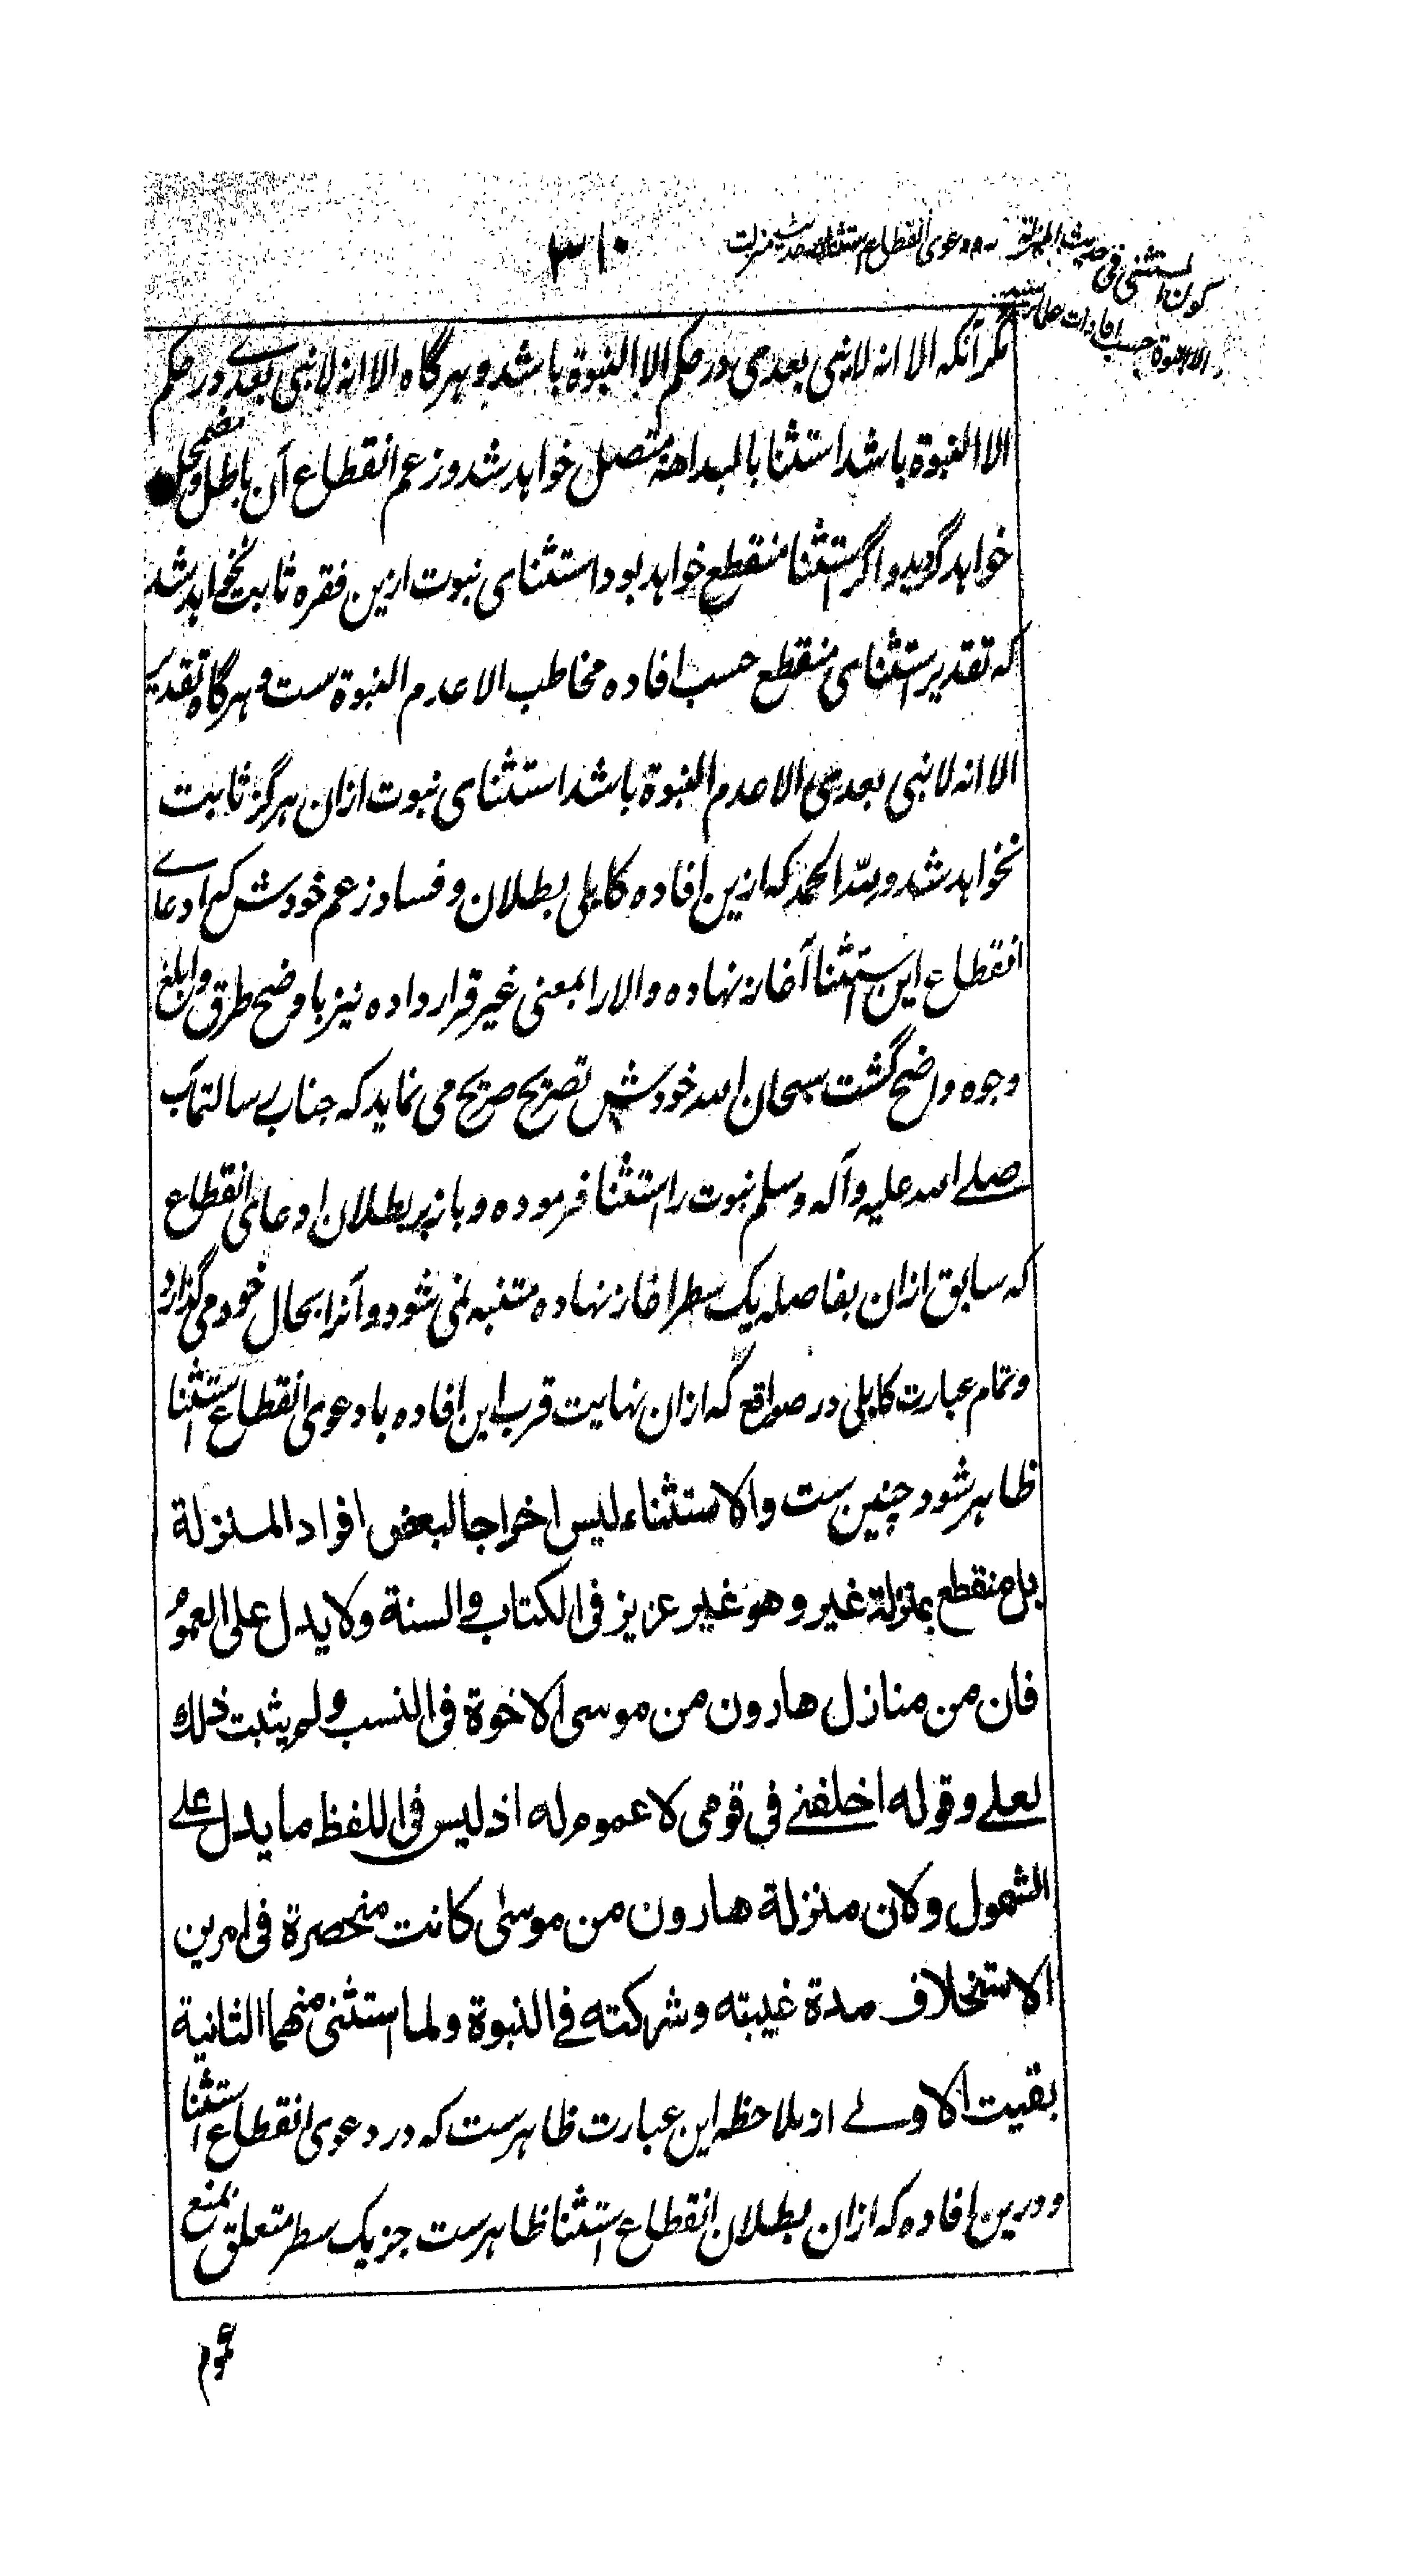 ۳۱۰
دعوی انقطاع استثنا در حدیث منزلت
کون المستثنی فی حدیث المنزلة
الا النبوة حسب افادات
مگر آنکه الا انه لا نبی بعدی در حکم الا النبوة باشد و هرگاه الا انه لا نبی بعدے در حکم
الا النبوة باشد استثنا بالبداهة متصل خواهد شد و زعم انقطاع آن باطل و مضمحل
خواهد گردید و اگر استثنا منقطع خواهد بود استثنای نبوت ازین فقره ثابت نخواهد شد
که تقدیر استثنای منقطع حسب افاده مخاطب الا عدم النبوة ست و هرگاه تقدیر
الا انه لا نبی بعدی الا عدم النبوة باشد استثنای نبوت ازان هرگز ثابت
نخواهد شد و لله الحمد که ازین افاده کابلی بطلان و فساد زعم خودش که ادعاے
انقطاع این استثنا آغاز نهاده و الا را بمعنی غیر قرار داده نیز باوضح طرق و ابلغ
وجوه واضح گشت سبحان الله خودش تصریح صریح می نماید که جناب رسالتمآب
صلے الله علیه و آله و سلم نبوت را استثنا فرموده و باز بر بطلان ادعای انقطاع
که سابق ازان بفاصله یک سطر اغاز نهاده متنبه نمی شود و آنرا بحال خود می گذارد
و تمام عبارت کابلی در صواقع که ازان نهایت قرب این افاده با دعوی انقطاع استثنا
ظاهر شود چنین ست والاستثناء لیس اخراجا لبعض افراد المنزلة
بل منقطع بمنزلة غیر وهو غیر عزیز فی الکتاب والسنة ولا یدل علی العموم
فان من منازل هارون من موسی الاخوة فی النسب ولم یثبت ذلك
لعلے وقوله اخلفنے فی قومی لا عموم له اذ لیس فی اللفظ ما یدل علے
الشمول ولان منزلة هارون من موسی کانت منحصرة فی امرین
الاستخلاف مدة غیبته وشرکته فے النبوة ولما استثنی منهما الثانیة
بقیت الاولے از ملاحظه این عبارت ظاهرست که در دعوی انقطاع استثنا
و درین افاده که ازان بطلان انقطاع استثنا ظاهرست جز یک سطر متعلق بمنع
عموم